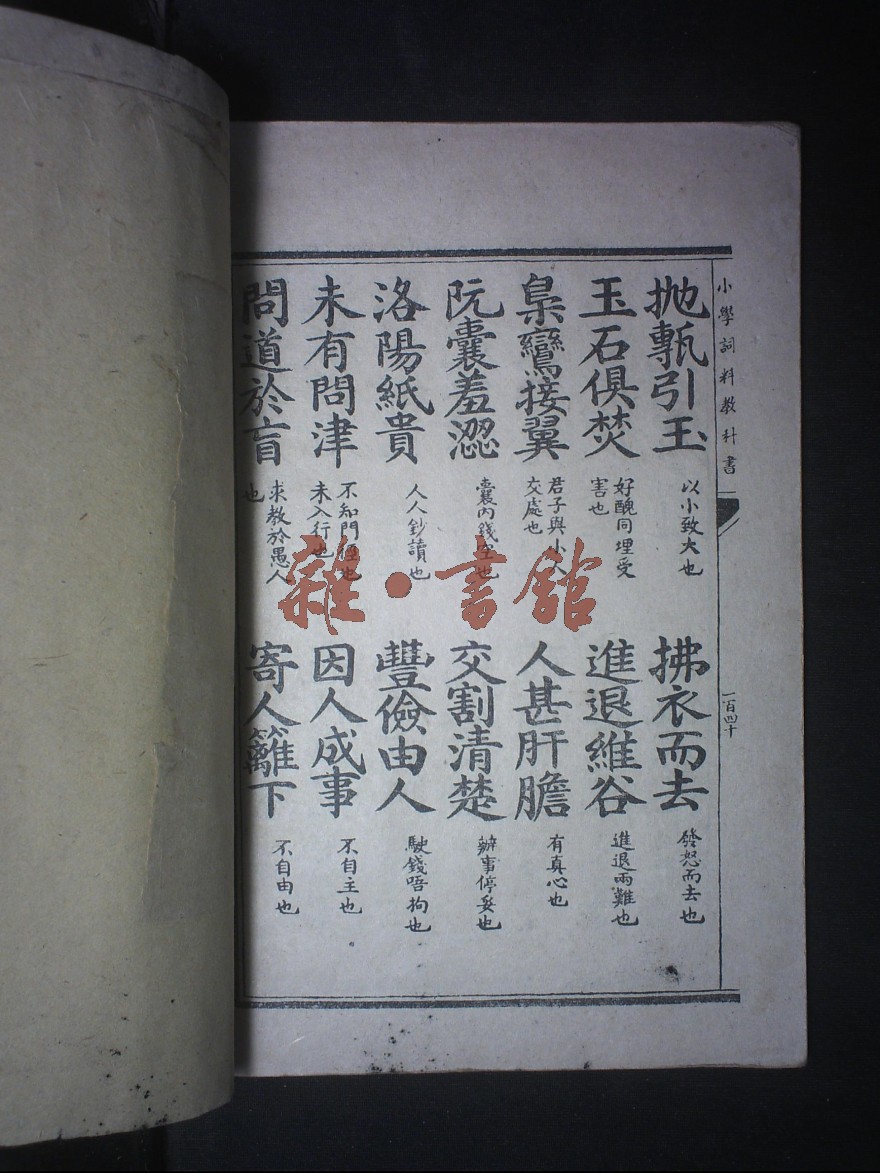 小學詞料教科書
一百四十
抛甎引玉
以小致大也
拂衣而去
發怒而去也
玉石俱焚
好醜同埋受
害也
進退維谷
進退兩難也
梟鸞接翼
君子與小人
交處也
人甚肝膽
有真心也
阮囊羞澀
囊內錢空也
交割清楚
辦事停妥也
洛陽紙貴
人人鈔讀也
豐儉由人
駛錢唔拘也
未有問津
不知門徑也
未入行也
因人成事
不自主也
問道於盲
求教於愚人
也
寄人籬下
不自由也
雜·書館